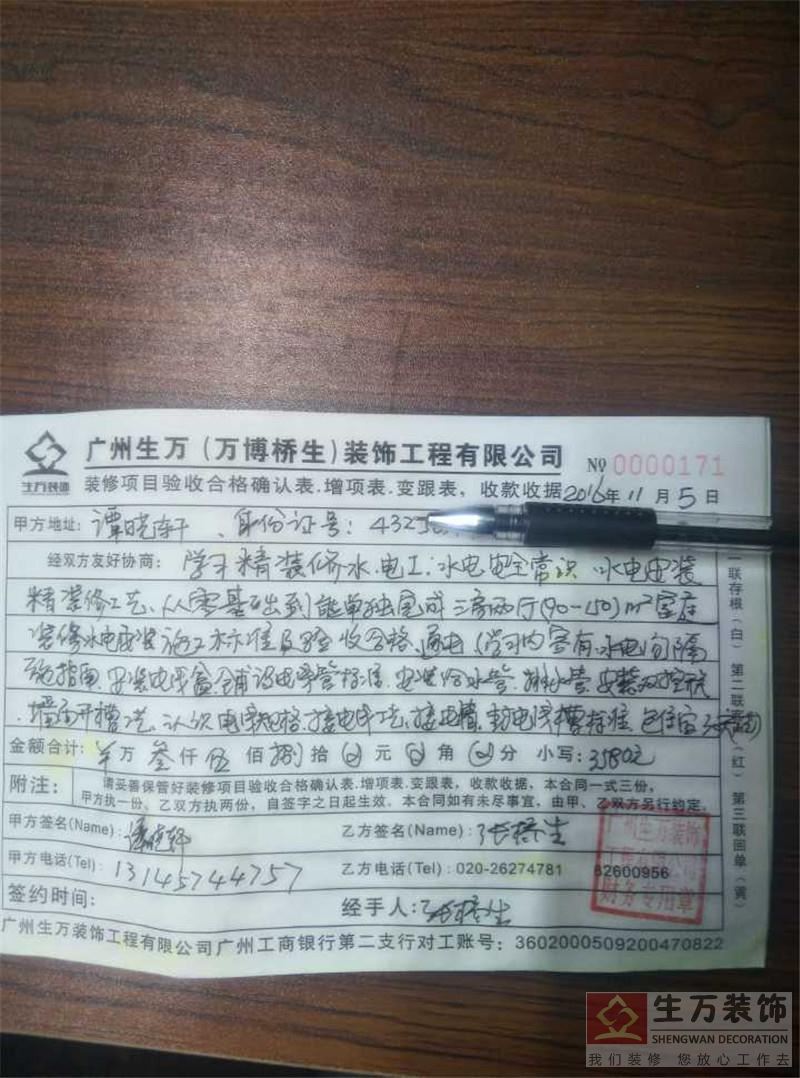 广州生万(万博桥生)装饰工程有限公司 № 0000171
生万装饰
装修项目验收合格确认表.增项表.变跟表,收款收据 2016年11月5日
甲方地址:谭晓轩、身份证号:4325
经双方友好协商:学习精装修水.电工.水电安全常识 水电安装
精装修工艺、从零基础到能单独完成三房两厅(90-150)m²家庭
装修水电安装施工标准及验收合格、通电(学习内容有水电间隔
施指南.安装电线盒铺设电线管标准.安装给水管.排水管.安装双控
墙面开槽工艺.认识电线规格.接电线工艺.封电线槽标准.包住宿
金额合计: 万 叁仟伍佰捌拾 元 角 分 小写:3580元
附注:请妥善保管好装修项目验收合格确认表.增项表.变跟表,收款收据,本合同一式三份,
甲方执一份、乙双方执两份,自签字之日起生效。本合同如有未尽事宜,由甲、乙双方另行约定。
甲方签名(Name):谭晓轩 乙方签名(Name):张桥生
甲方电话(Tel):13145744757 乙方电话(Tel):020-26274781 82600956
签约时间: 经手人:张桥生
广州生万装饰工程有限公司广州工商银行第二支行对工账号:3602000509200470822
一联存根(白) 第二联 (红) 第三联回单(黄)
广州生万装饰
工程有限公司
财务专用章
生万装饰
SHENGWAN DECORATION
我们装修 您放心工作去